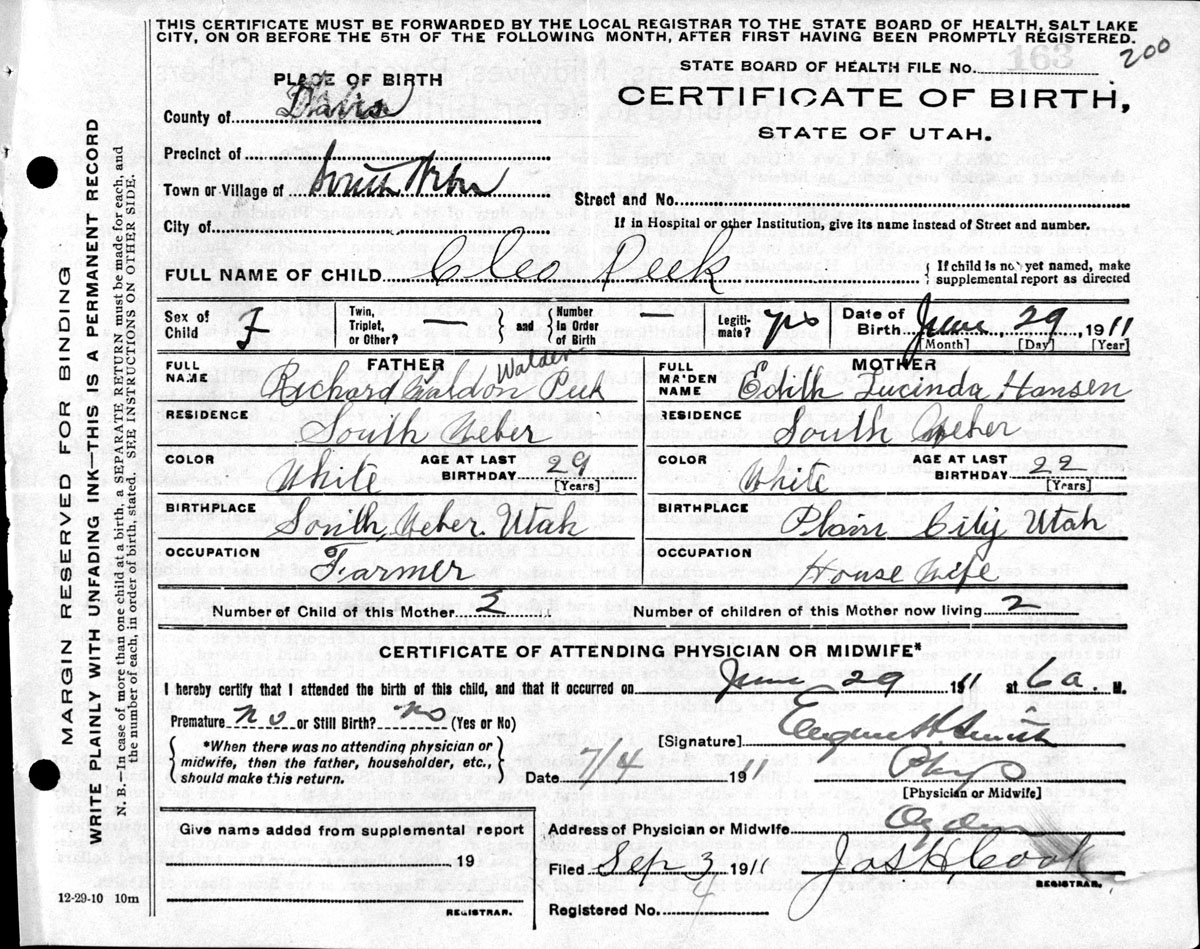 THIS CERTIFICATE MUST BE FORWARDED BY THE LOCAL REGISTRAR TO THE STATE BOARD OF HEALTH, SALT LAKE
CITY, ON OR BEFORE THE 5TH OF THE FOLLOWING MONTH, AFTER FIRST HAVING BEEN PROMPTLY REGISTERED.
200
163
STATE BOARD OF HEALTH FILE No.
PLACE OF BIRTH
CERTIFICATE OF BIRTH,
STATE OF UTAH.
County of Davis
Precinct of
Town or Village of South Weber
Street and No.
City of
If in Hospital or other Institution, give its name instead of Street and number.
FULL NAME OF CHILD Cleo Peek
{ If child is not yet named, make supplemental report as directed
Sex of Child F
Twin, Triplet, or Other?
{ and } Number in Order of Birth —
Legitimate? yes
Date of Birth June 29 1911
[Month] [Day] [Year]
FATHER
MOTHER
FULL NAME Richard Waldon Peek
Walden
FULL MAIDEN NAME Edith Lucinda Hansen
RESIDENCE South Weber
RESIDENCE South Weber
COLOR White AGE AT LAST BIRTHDAY 29 [Years]
COLOR White AGE AT LAST BIRTHDAY 22 [Years]
BIRTHPLACE South Weber. Utah
BIRTHPLACE Plain City Utah
OCCUPATION Farmer
OCCUPATION House Wife
Number of Child of this Mother 2
Number of children of this Mother now living 2
CERTIFICATE OF ATTENDING PHYSICIAN OR MIDWIFE*
I hereby certify that I attended the birth of this child, and that it occurred on June 29 1911 at 6 a. M.
Premature no or Still Birth? no (Yes or No)
{ *When there was no attending physician or midwife, then the father, householder, etc., should make this return. }
[Signature] Eugene H Smith
Date 7/4 1911 Phys
[Physician or Midwife]
Give name added from supplemental report
19
REGISTRAR.
Address of Physician or Midwife Ogden
Filed Sep 3 1911 Jos H. Cook
REGISTRAR.
Registered No.
12-29-10 10m
MARGIN RESERVED FOR BINDING
WRITE PLAINLY WITH UNFADING INK—THIS IS A PERMANENT RECORD
N. B.—In case of more than one child at a birth, a SEPARATE RETURN must be made for each, and
the number of each, in order of birth, stated. SEE INSTRUCTIONS ON OTHER SIDE.